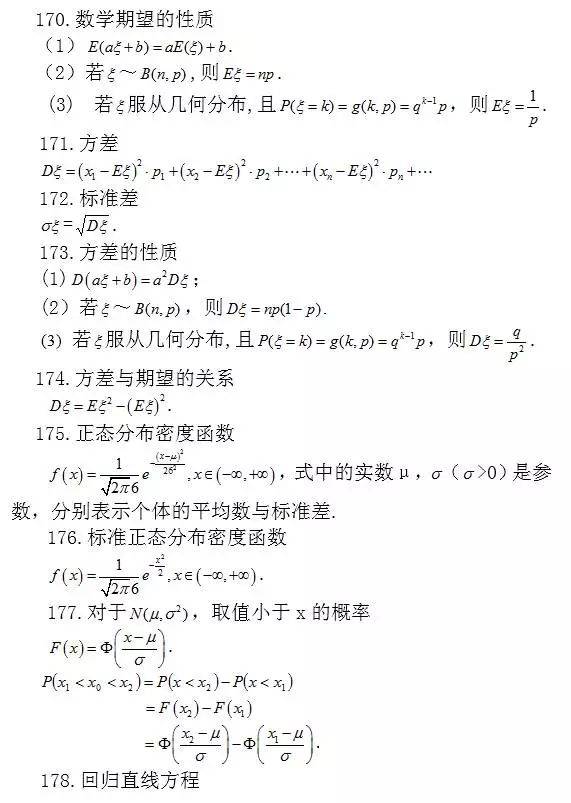 170.数学期望的性质
(1) E(aξ+b)=aE(ξ)+b.
(2)若ξ～B(n,p),则Eξ=np.
(3) 若ξ服从几何分布,且P(ξ=k)=g(k,p)=q^{k-1}p，则Eξ=\frac{1}{p}.
171.方差
Dξ=(x_1-Eξ)^2·p_1+(x_2-Eξ)^2·p_2+⋯+(x_n-Eξ)^2·p_n+⋯
172.标准差
σξ=\sqrt{Dξ}.
173.方差的性质
(1)D(aξ+b)=a^2Dξ；
(2)若ξ～B(n,p)，则Dξ=np(1-p).
(3) 若ξ服从几何分布,且P(ξ=k)=g(k,p)=q^{k-1}p，则Dξ=\frac{q}{p^2}.
174.方差与期望的关系
Dξ=Eξ^2-(Eξ)^2.
175.正态分布密度函数
f(x)=\frac{1}{\sqrt{2π}6}e^{-\frac{(x-μ)^2}{26^2}},x∈(-∞,+∞)，式中的实数μ,σ(σ>0)是参
数，分别表示个体的平均数与标准差.
176.标准正态分布密度函数
f(x)=\frac{1}{\sqrt{2π}6}e^{-\frac{x^2}{2}},x∈(-∞,+∞).
177.对于N(μ,σ^2)，取值小于x的概率
F(x)=Φ(\frac{x-μ}{σ}).
P(x_1<x_0<x_2)=P(x<x_2)-P(x<x_1)
=F(x_2)-F(x_1)
=Φ(\frac{x_2-μ}{σ})-Φ(\frac{x_1-μ}{σ}).
178.回归直线方程